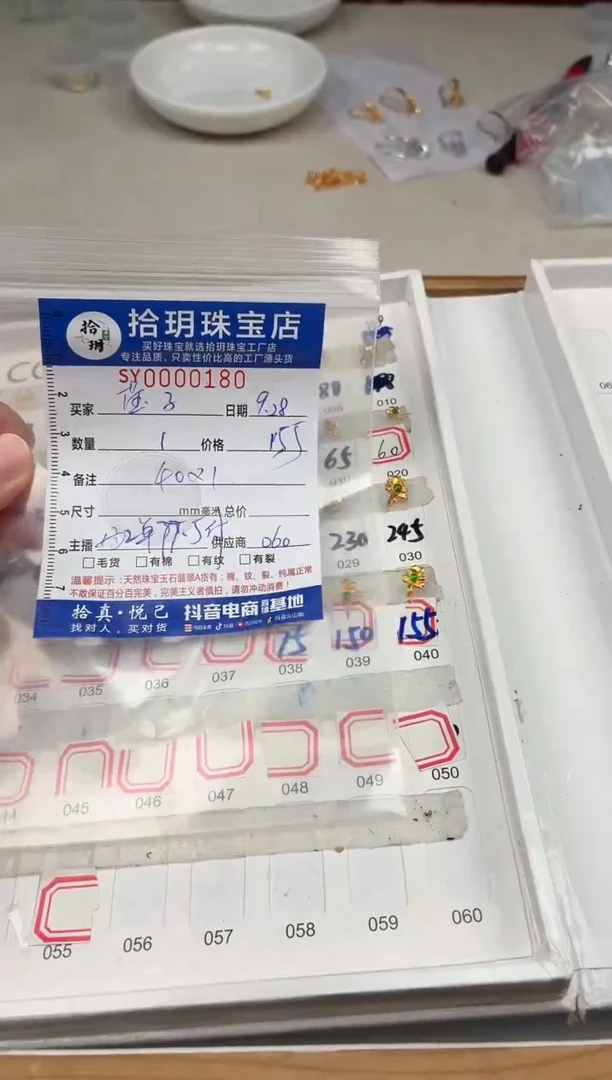 拾玥
拾玥珠宝店
买好珠宝就选拾玥珠宝工厂店
专注品质、只卖性价比高的工厂源头货
SY0000180
买家 日期 9.28
数量 1 价格 155
备注
尺寸 mm毫米 总价
主播 供应商 060
□毛货 □有棉 □有纹 □有裂
温馨提示:天然珠宝玉石翡翠A货有:棉、纹、裂,纯属正常
不敢保证百分百完美,完美主义者慎拍,请勿冲动消费!
拾真·悦己 抖音电商 基地
找对人,买对货
010
65 60
020
230 245
029 030
75 150 155
034 035 036 037 038 039 040
045 046 047 048 049 050
055 056 057 058 059 060